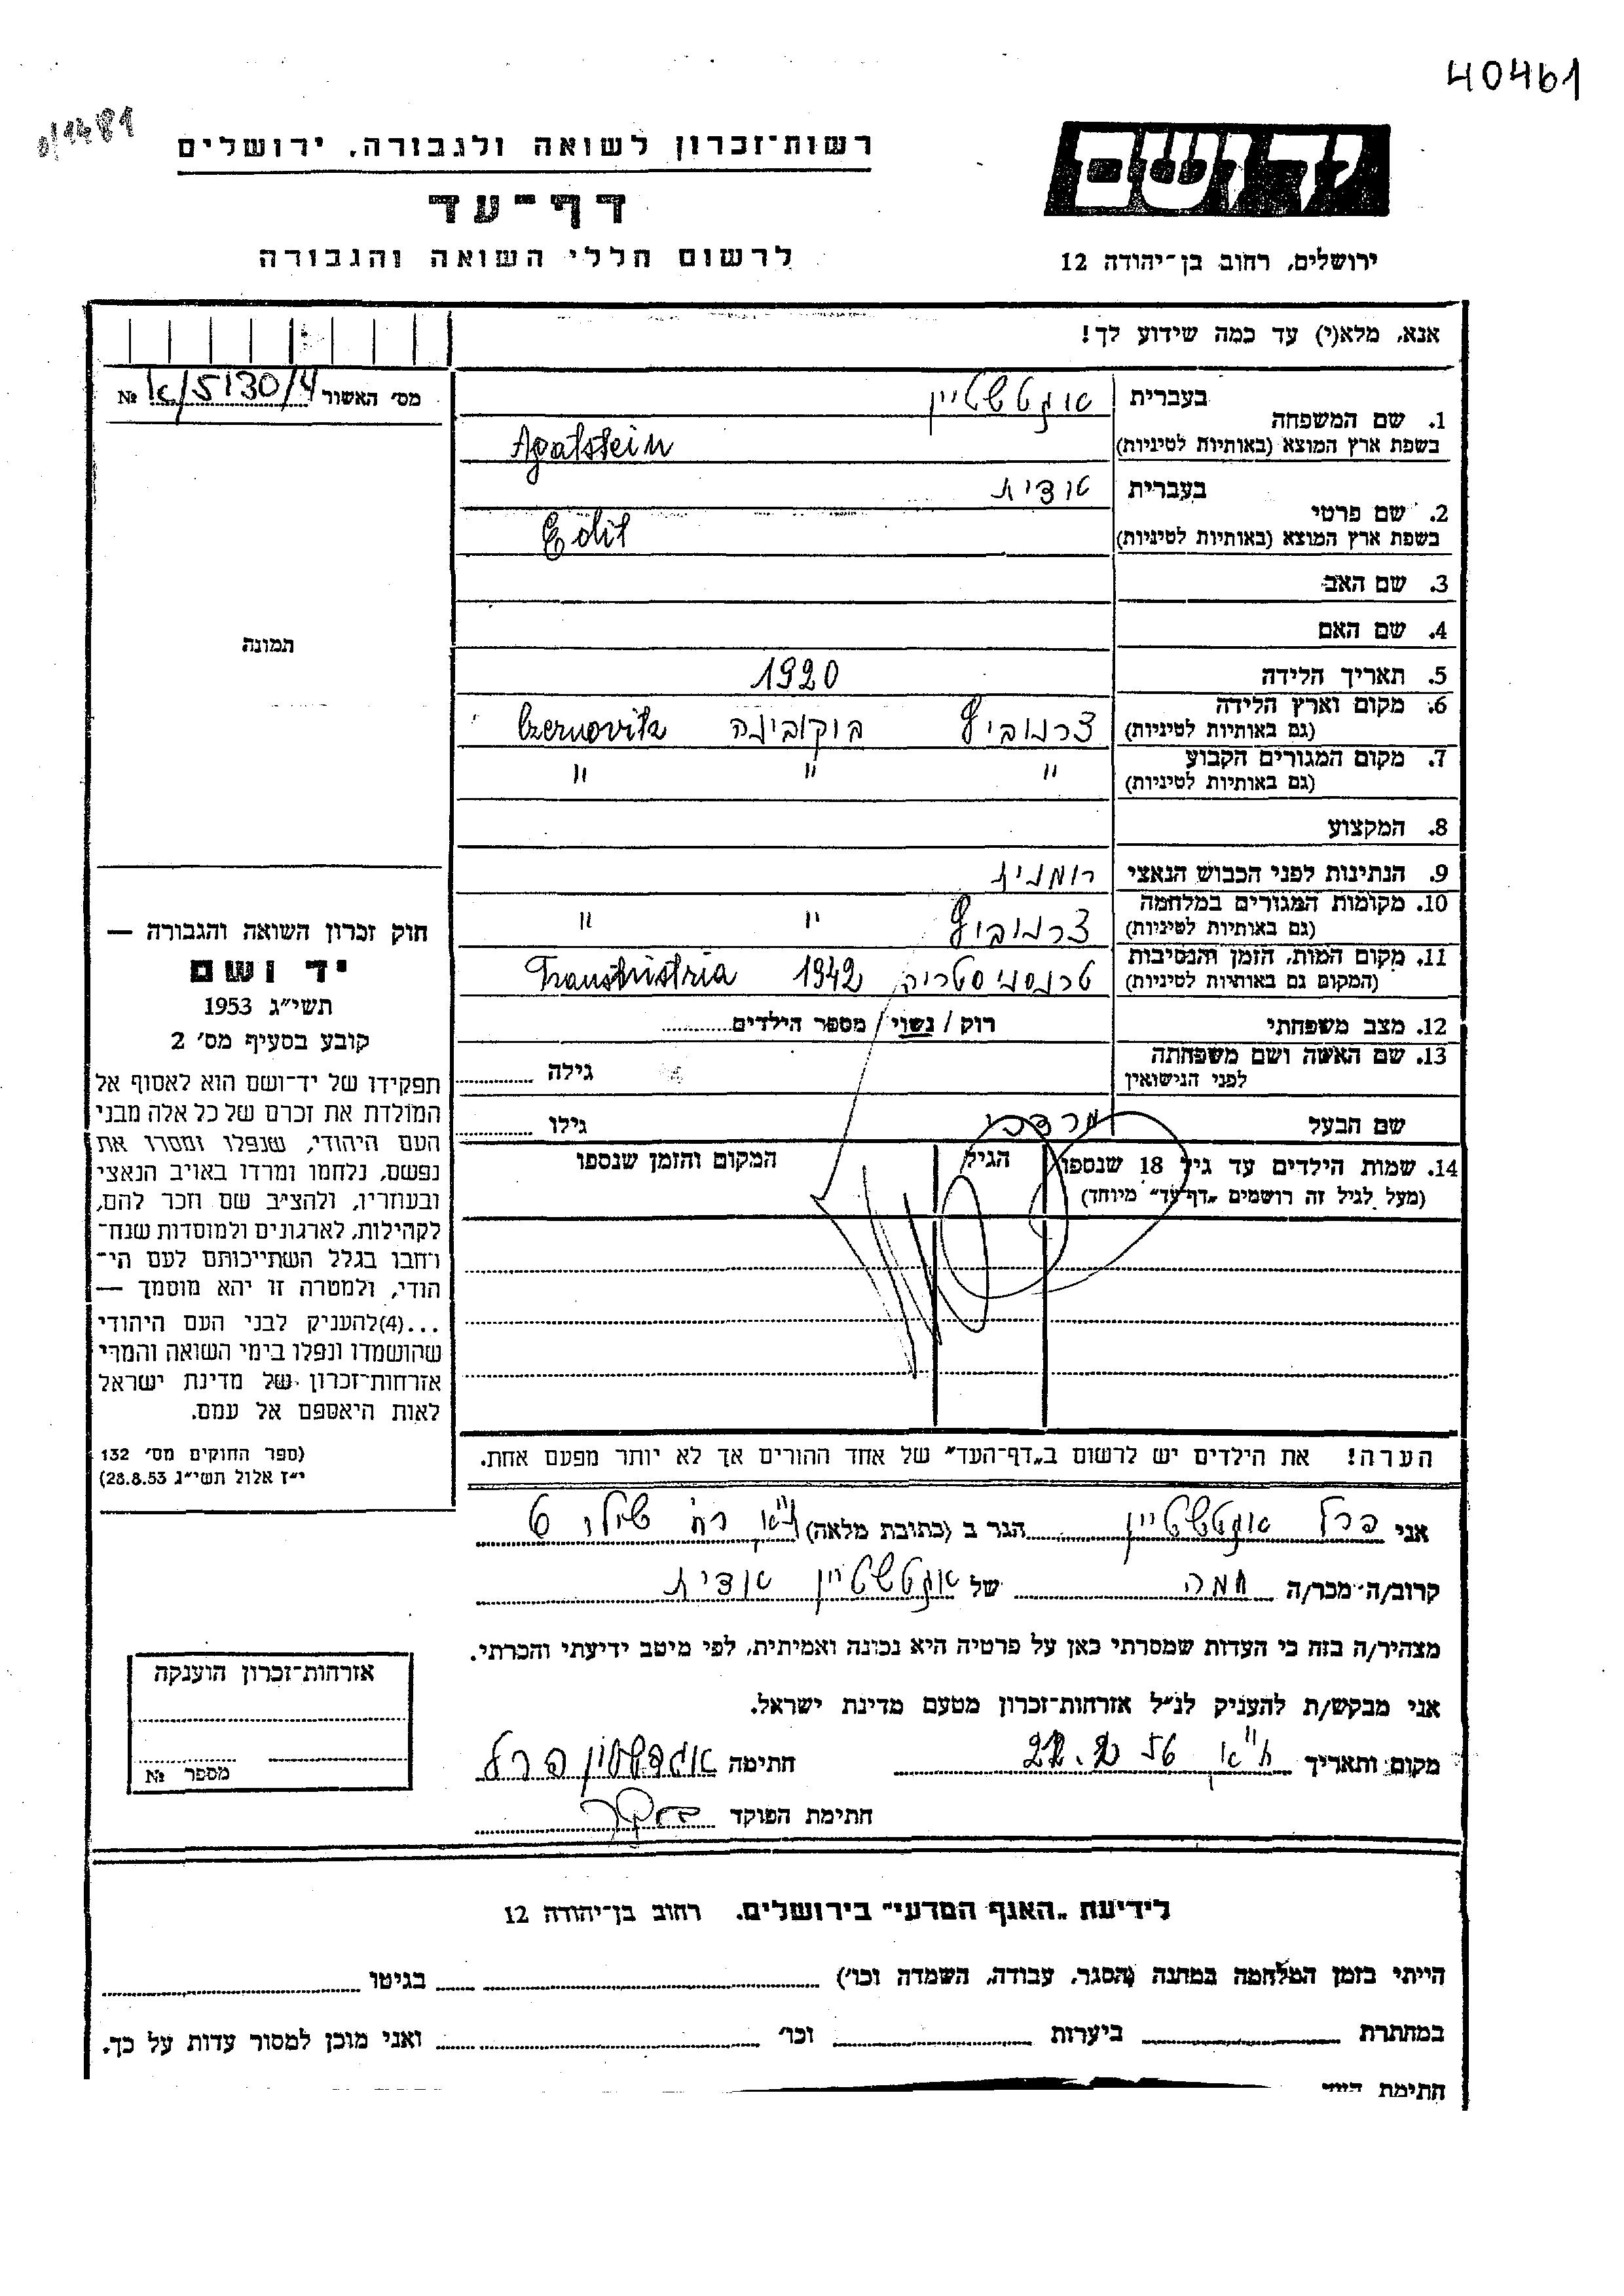 40461
רשות־זכרון לשואה ולגבורה, ירושלים
דף־עד
לרשום חללי השואה והגבורה
יד ושם
ירושלים, רחוב בן־יהודה 12
אנא, מלא(י) עד כמה שידוע לך!
מס׳ האשור 5130/4 №
1. שם המשפחה
בעברית אגטשטיין
בשפת ארץ המוצא (באותיות לטיניות) Agatstein
2. שם פרטי
בעברית אדית
בשפת ארץ המוצא (באותיות לטיניות) Edit
3. שם האב
4. שם האם
תמונה
5. תאריך הלידה 1920
6. מקום וארץ הלידה
(גם באותיות לטיניות) צרנוביץ בוקובינה Czernovitz
7. מקום המגורים הקבוע
(גם באותיות לטיניות) " " "
8. המקצוע
9. הנתינות לפני הכבוש הנאצי רומנית
10. מקומות המגורים במלחמה
(גם באותיות לטיניות) צרנוביץ " "
11. מקום המות, הזמן והנסיבות
(המקום גם באותיות לטיניות) טרנסניסטריה 1942 Transnistria
12. מצב משפחתי רוק / נשוי / מספר הילדים
13. שם האשה ושם משפחתה
לפני הנישואין גילה
שם הבעל מרדכי גילו
14. שמות הילדים עד גיל 18 שנספו הגיל המקום והזמן שנספו
(מעל לגיל זה רושמים „דף־עד״ מיוחד)
חוק זכרון השואה והגבורה —
יד ושם
תשי״ג 1953
קובע בסעיף מס׳ 2
תפקידו של יד־ושם הוא לאסוף אל
המולדת את זכרם של כל אלה מבני
העם היהודי, שנפלו ומסרו את
נפשם, נלחמו ומרדו באויב הנאצי
ובעוזריו, ולהציב שם וזכר להם,
לקהילות, לארגונים ולמוסדות שנח־
רבו בגלל השתייכותם לעם הי־
הודי, ולמטרה זו יהא מוסמך —
...(4)להעניק לבני העם היהודי
שהושמדו ונפלו בימי השואה והמרי
אזרחות־זכרון של מדינת ישראל
לאות היאספם אל עמם.
(ספר החוקים מס׳ 132
י״ז אלול תשי״ג 28.8.53)
הערה! את הילדים יש לרשום ב„דף־העד״ של אחד ההורים אך לא יותר מפעם אחת.
אני פרל אגטשטיין הגר ב (כתובת מלאה) ת"א רח׳ שילו 6
קרוב/ה־מכר/ה חמה של אגטשטיין אדית
מצהיר/ה בזה כי העדות שמסרתי כאן על פרטיה היא נכונה ואמיתית, לפי מיטב ידיעתי והכרתי.
אני מבקש/ת להעניק לנ״ל אזרחות־זכרון מטעם מדינת ישראל.
מקום ותאריך ת"א 56 חתימה פרל
חתימת הפוקד
אזרחות־זכרון הוענקה
מספר №
לידיעת „האגף המדעי״ בירושלים. רחוב בן־יהודה 12
הייתי בזמן המלחמה במחנה (הסגר, עבודה, השמדה וכו׳) בגיטו
במחתרת ביערות וכו׳ ואני מוכן למסור עדות על כך.
חתימת